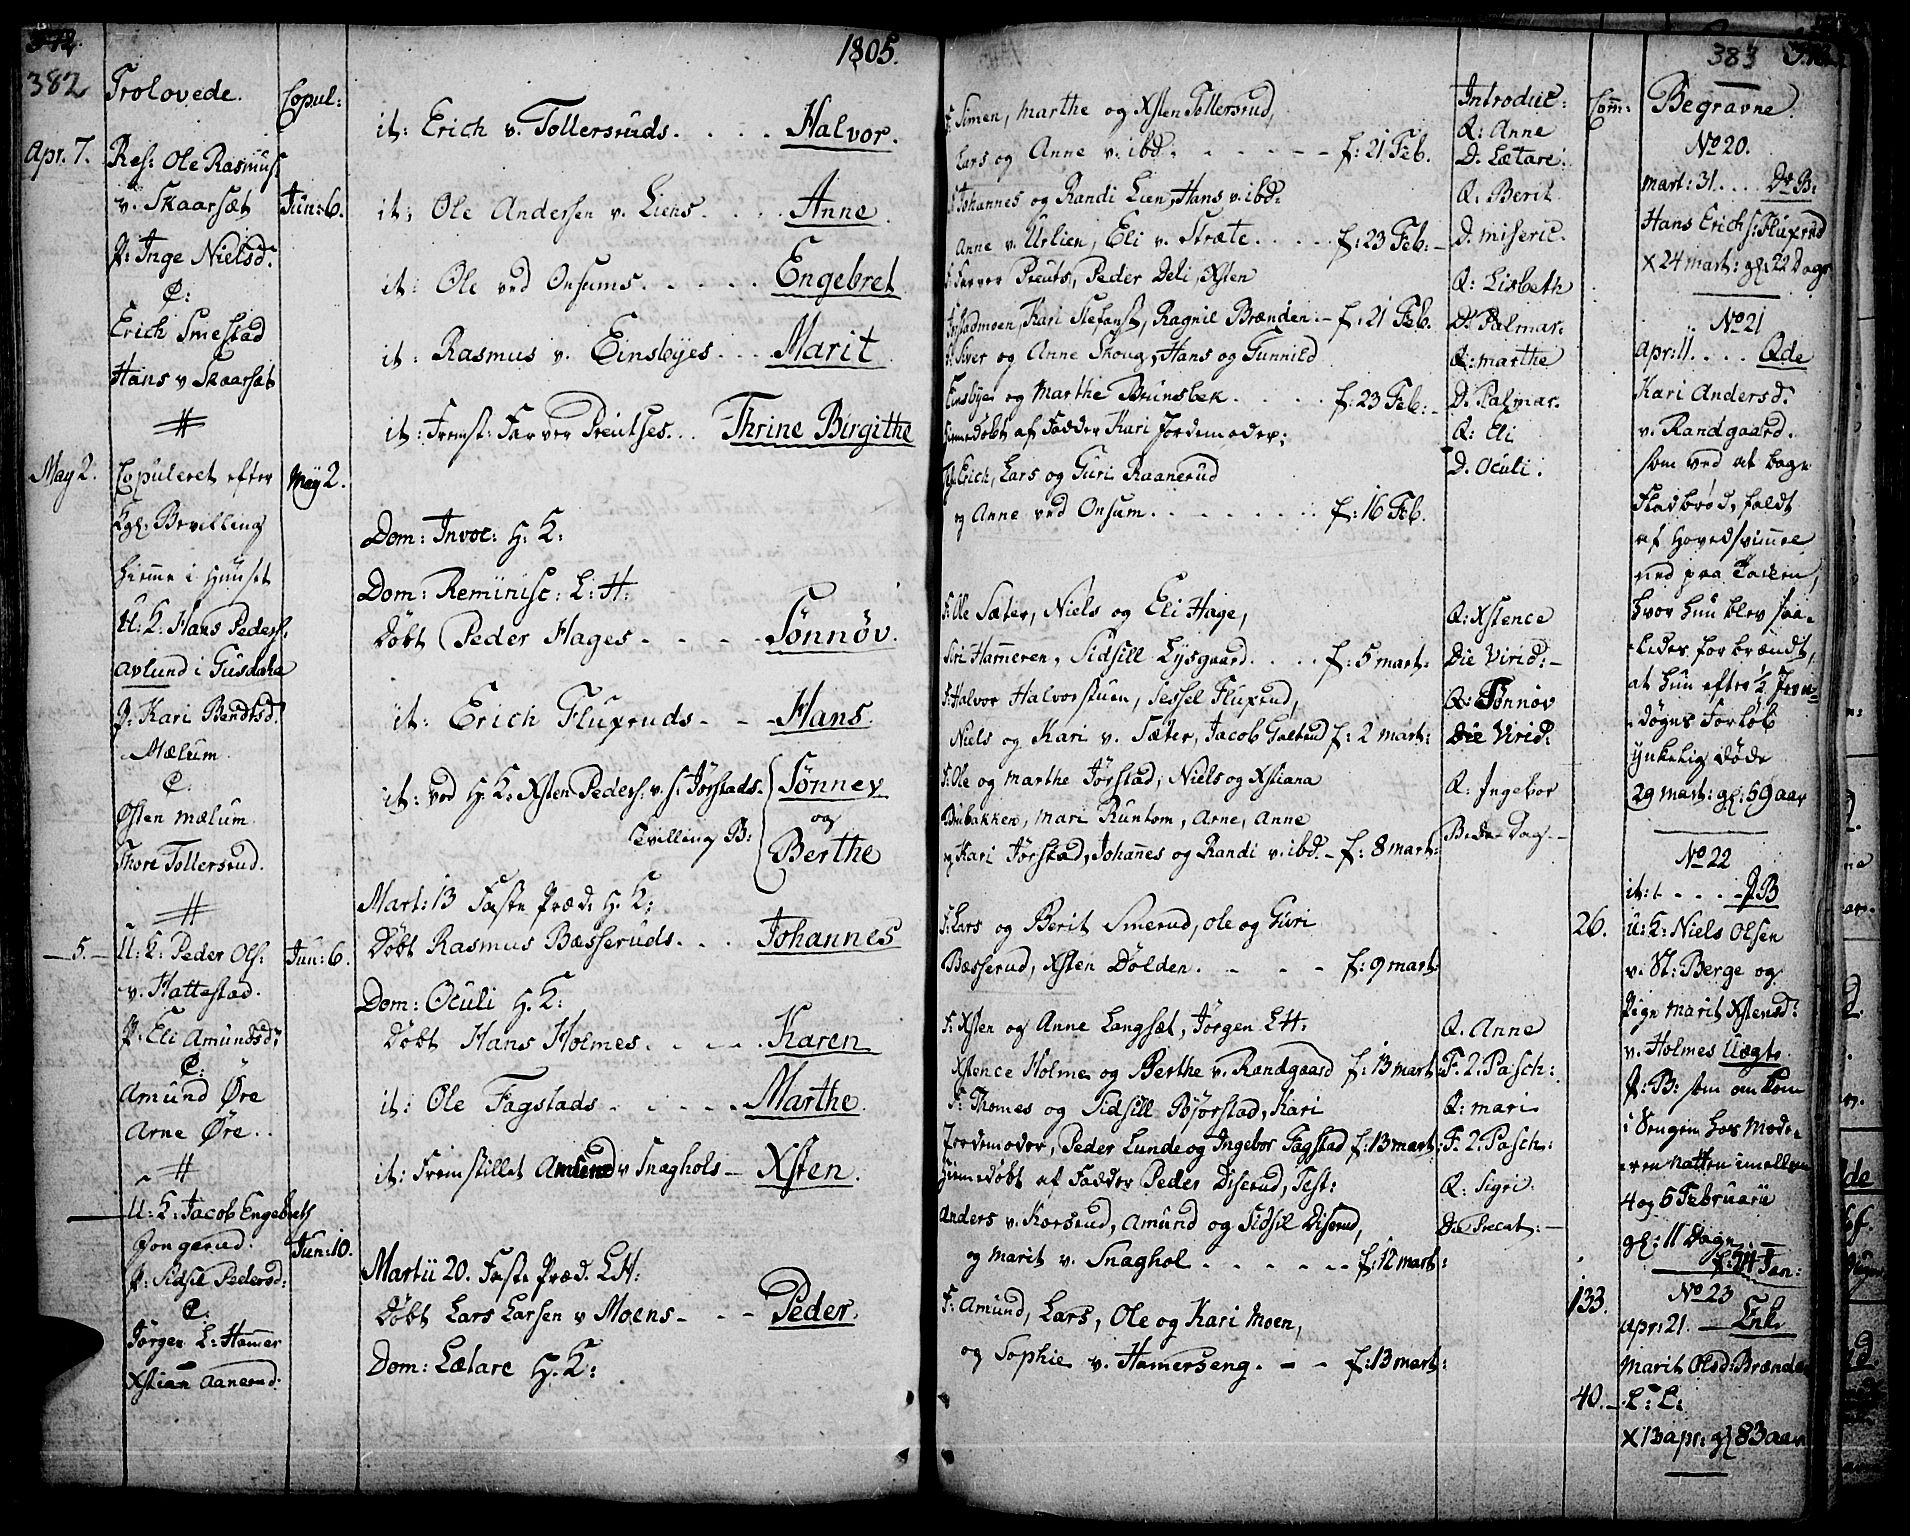 382
1805.
383
Trolovede.
Copul:
Apr. 7.
Res: Ole Rasmus
v. Skaarsæt
Jun: 6.
P. Inge Nielsd.
C:
Erich Smestad
Hans v Skaarsæt
May 2.
Copuleret efter
May 2.
Kgl. Bevilling
hiemme i Huuset
U: K: Hans Peders:
Avlund i Gusdahl
P. Kari Bendtsd.
Mælum
C:
Østen Mælum
Thore Tollersrud.
5.
U: K: Peder Ols:
Jun: 6.
v. Hattestad.
P: Eli Amundsd:
C:
Amund Øre
Arne Øre.
U: K: Jacob Engebrets
Jongerud.
Jun: 10.
P: Sidsil Pedersd:
C:
Jørgen L: Hamer
Xstian Aanerud.
it: Erich v. Tollersruds. Halvor.
it: Ole Andersen v. Liens. Anne
it: Ole ved Onsums. Engebret
it: Rasmus v. Einsbyes. Marit
it: Fremst: Farver Preutses. Thrine Birgithe
Dom: Invoc: H: K:
Dom: Reminisc: L: H:
Døbt Peder Hages Sønnøv.
it: Erich Fluxruds Hans.
it: ved H: K: Xsten Peders: v. S: Jørstads. Sønnev
Tvilling B: og
Berthe
Mart: 13 Faste Præd: H: K:
Døbt Rasmus Bæsseruds. Johannes
Dom: Oculi H: K:
Døbt Hans Holmes. Karen
it: Ole Fagstads Marthe.
it: Fremstillet Amund v Snaghols Xsten.
Martii 20. Faste Præd. L H:
Døbt Lars Larsen v Moens Peder.
Dom: Lætare H: K:
F: Simen, Marthe og Xsten Tollersrud,
Lars og Anne v: ibd: f: 21 Feb.
F: Johannes og Randi Lien, Hans v: ibd:
Anne v. Urlien, Eli v. Stræte. f: 23 Feb:
F: Farver Preuts, Peder Deli, Xsten
Jørstadmoen, Kari Stefanst, Ragnil Brænden. f: 21 Feb.
F: Siver og Anne Skoug, Hans og Gunnild
Einsbye og Marthe Brunsbek. f: 23 Feb:
Hiemedøbt af Fadder Kari Jordemoder;
Erich, Lars og Guri Raanerud
og Anne ved Onsum. f: 16 Feb.
F: Ole Sæter, Niels og Eli Hage,
Siri Hameren, Sidsill Lysgaard. f: 5 mart:
F: Halvor Halvorstuen, Sessel Fluxrud,
Niels og Kari v. Sæter, Jacob Galtrud f: 2 mart:
F: Ole og Marthe Jørstad, Niels og Xstiana
Brubakken, Mari Runtom, Arne, Anne
og Kari Jørstad, Johannes og Randi v: ibd. f: 8 mart:
F: Lars og Berit Smerud, Ole og Guri
Bæsserud, Xsten Dølden. f: 9 mart:
F: Xsten og Anne Langsæt, Jørgen L H:
Xstence Holme og Berthe v. Randgaard f: 13 mart:
F: Thomes og Sidsill Jørstad, Kari
Jordemoder, Peder Lunde og Ingebor Fagstad f: 13 mart:
Hiemedøbt af Fadder Peder Diserud, Test:
Anders v. Korsrud, Amund og Sidsil Diserud,
og Marit v. Snaghol f: 12 mart:
F: Amund, Lars, Ole og Kari Moen,
og Sophie v. Hamerseng. f: 13 mart:
Introduc:
Q: Anne
D. Lætare:
Q: Berit
D. Miseric.
Q: Lisbeth
D. Palmar.
Q: Marthe
D. Palmar.
Q: Eli
D. Oculi.
Q: Xstence
Die Virid:
Q: Sønnøv
Die Virid:
Q: Ingebor
Bede-Dag.
Q. Anne
F. 2. Pasch:
Q: Mari
F. 2. Pasch:
Q: Sigri
Die Precat:
Com:
26.
133.
40.
Begravne.
No 20.
Mart: 31. Dr B:
Hans Erichs: Fluxrud
X 24 mart: gl: 22 Dage
No 21
Apr: 11. Qde
Kari Andersd.
v. Randgaard.
som ved at bage
Fladbrød, faldt
af Hovedsvimmel
ned paa Takken,
hvor hun blev saa-
ledes forbrændt,
at hun efter 1/2 Jevn-
døgns Forløb
ynkelig døde
29 mart: gl: 59 aar
No 22
it: PB
U: K: Niels Olsen
v. St: Berge og
Pige Marit Xstensd:
v. Holmes Uægte
P: B: som omkom
i Sengen hos Mode-
ren Natten imellem
4 og 5 Februarii
gl: 11 Dage
f: 24 Jan:
No 23
Apr: 21. Enke
Marit Olsd: Brænden
L: L:
X 13 apr: gl 83 aar